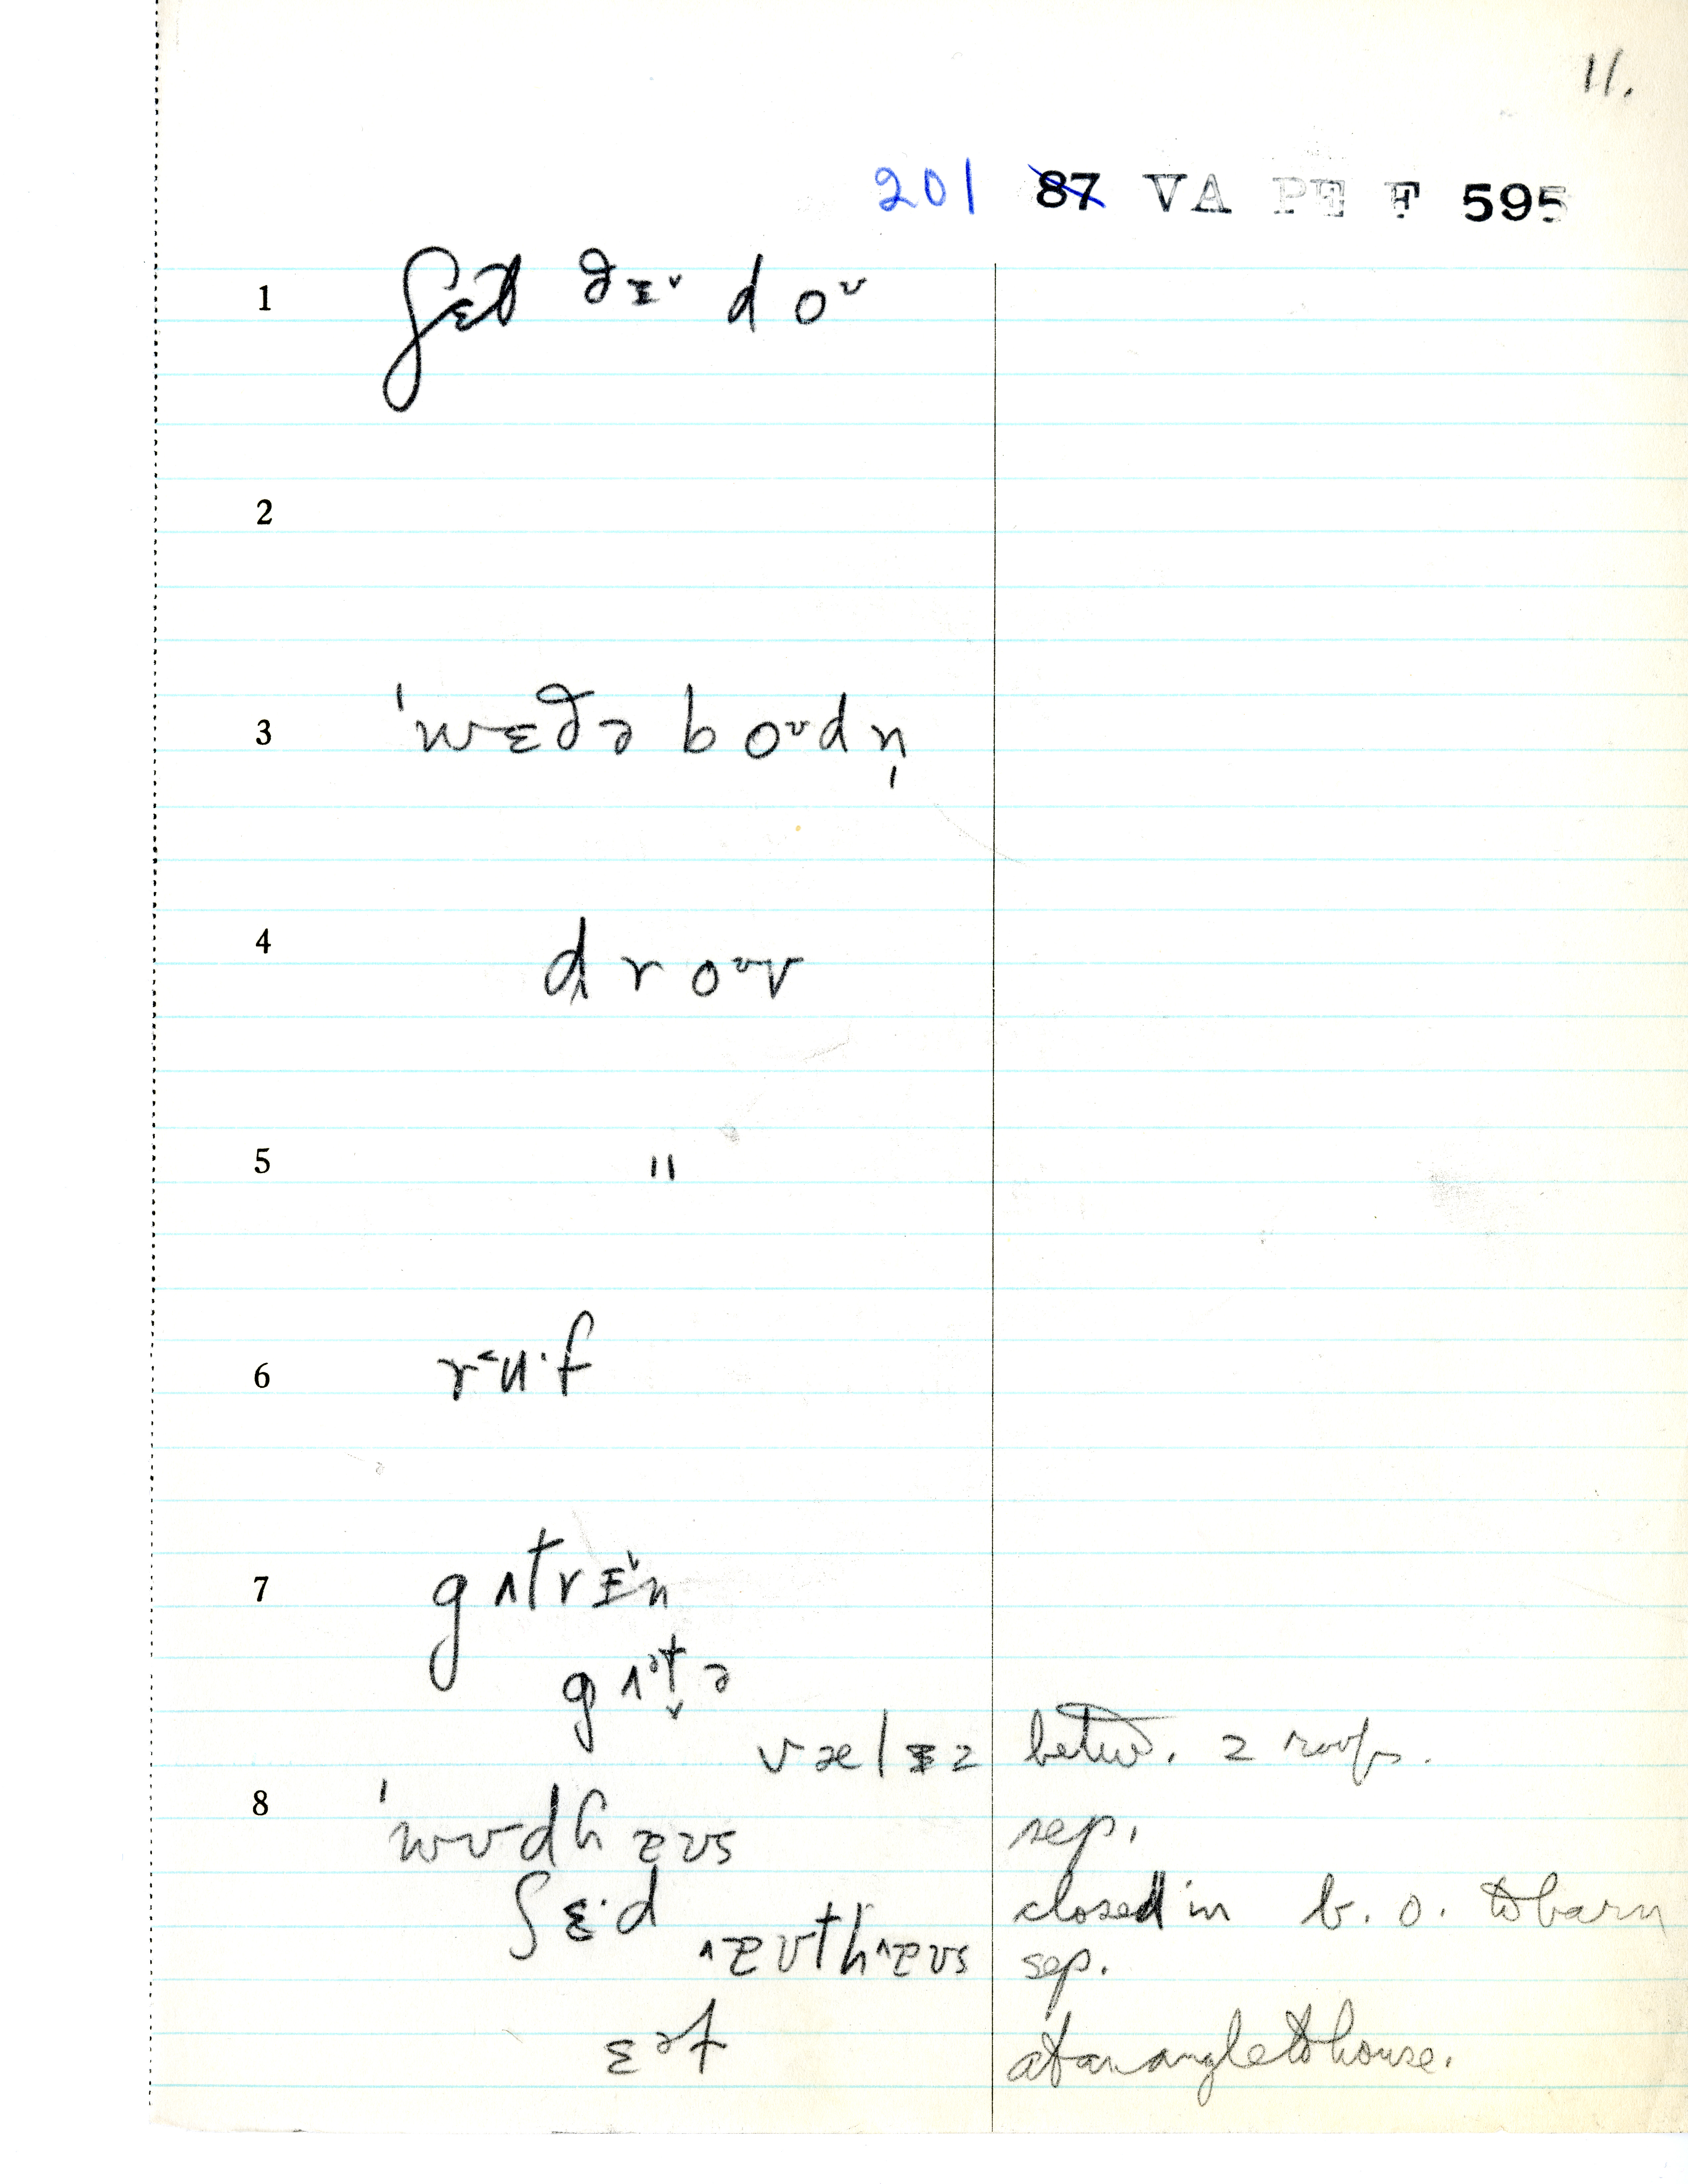 11.
201 87 VA PE F 595
1 ʃɛt ðᵻᵛ d oᶹ
2
3 'wɛðə b oᶹdn̩
4 d r oᶹv
5 "
6 r˂u·f
7 g ʌt r ᵻ˅n
g ʌᵊt̬ ə
v æ l ᵻ z betw. 2 roofs.
8 'wʊdh æʊs sep.
ʃ ɛ·d closed in b. o. to barn
ˌæʊth æʊs sep.
ɛᵊɫ at an angle to house.